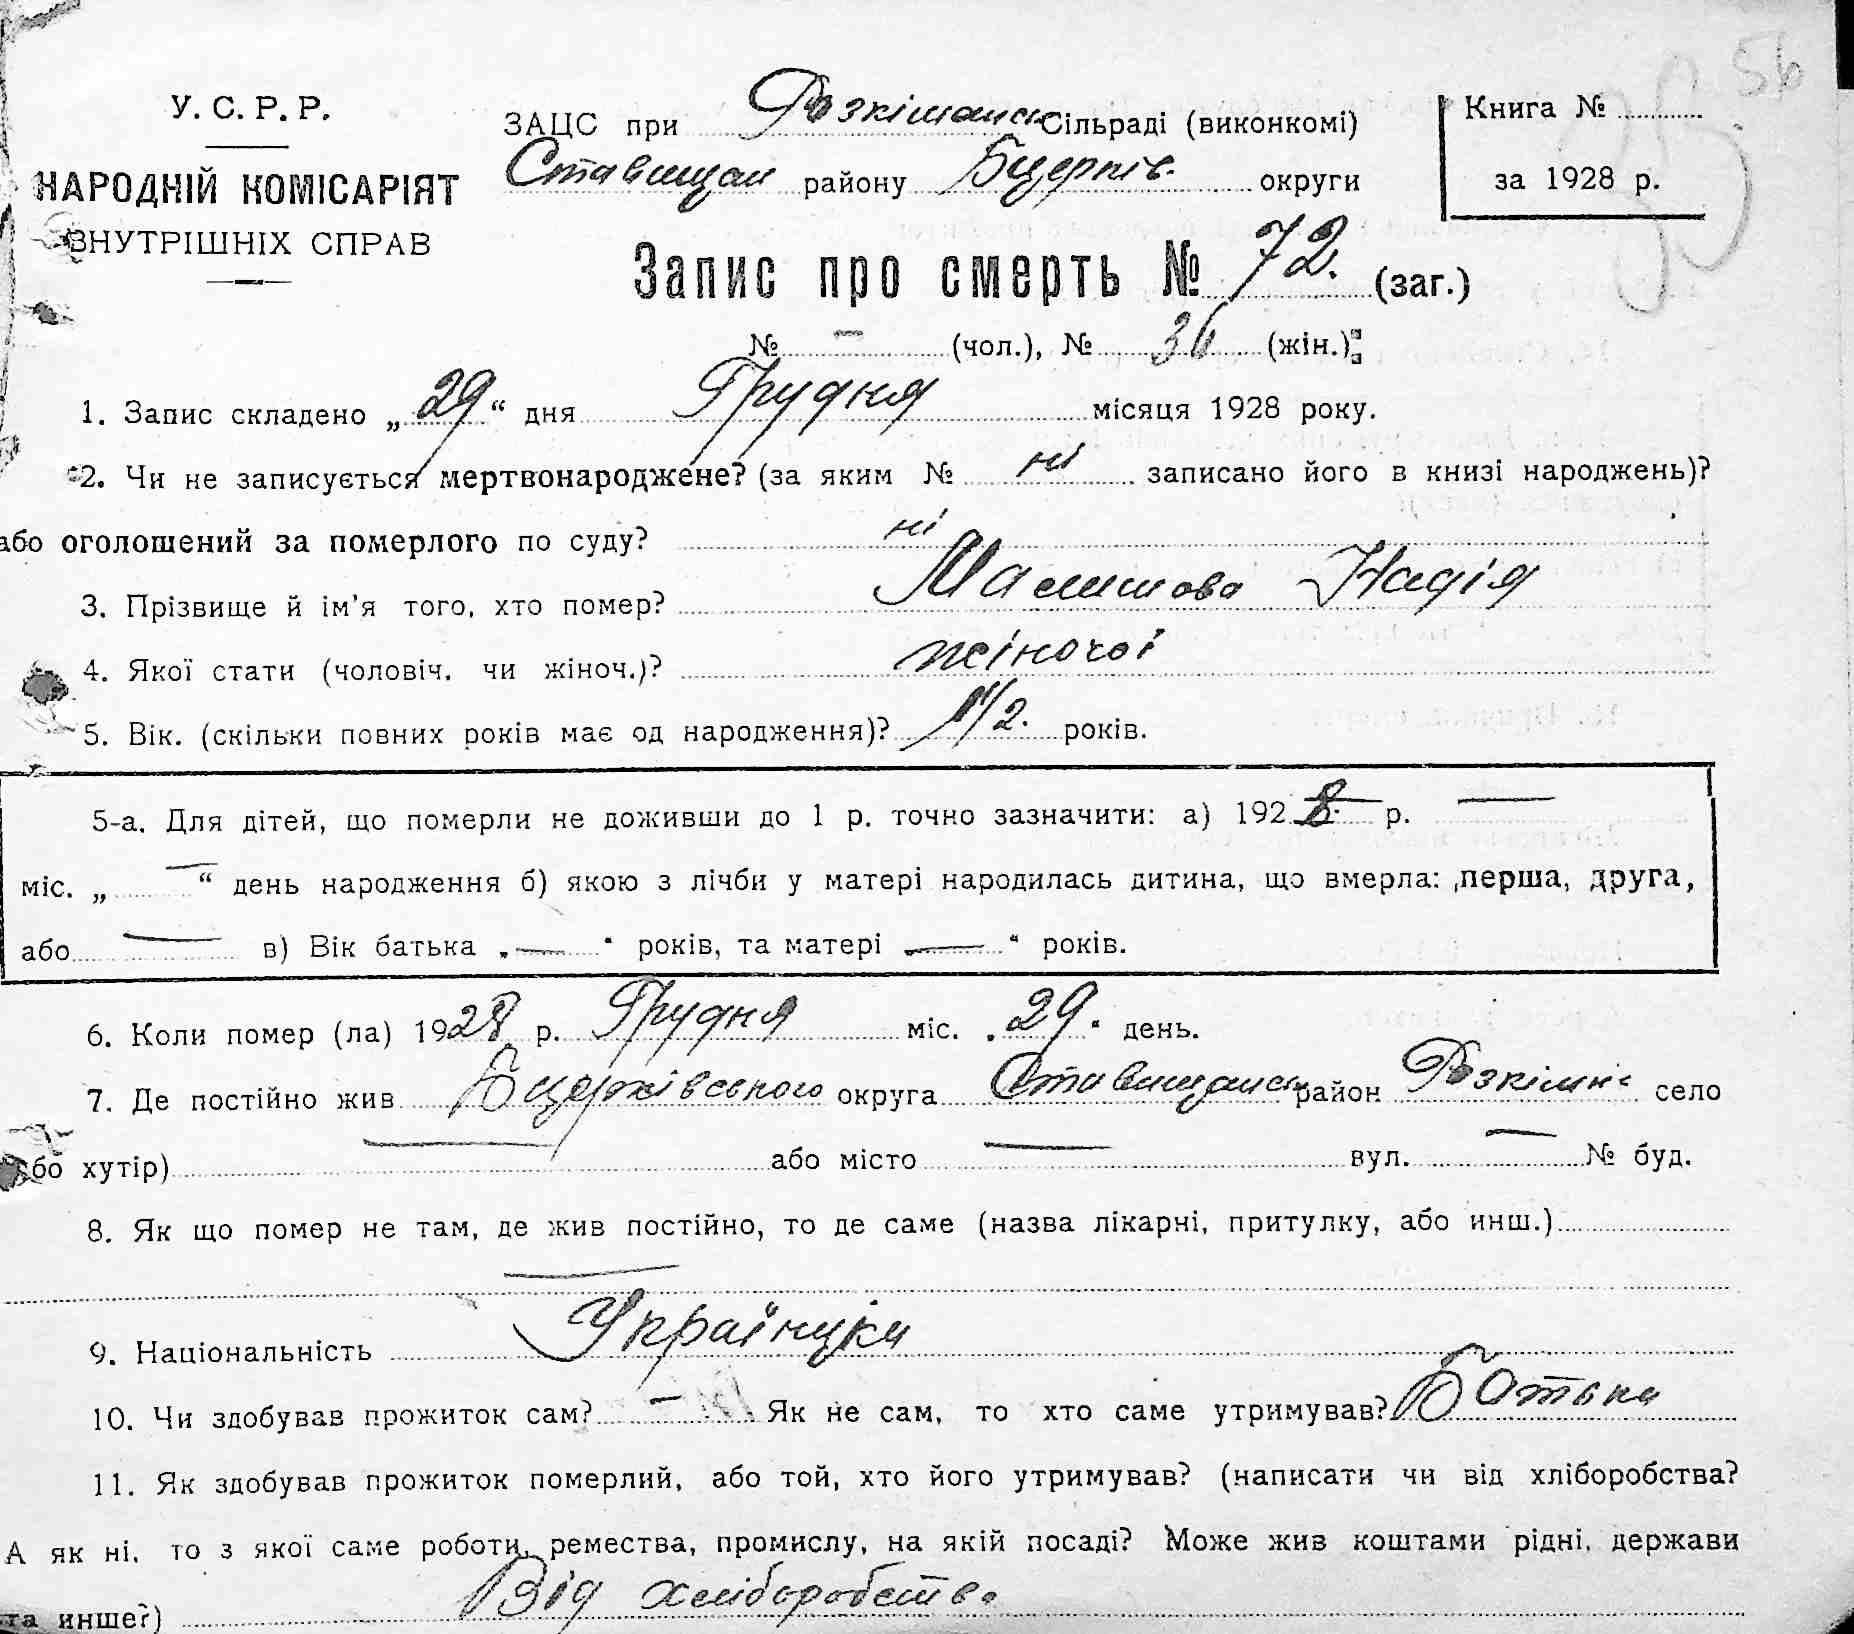 56
У. С. Р. Р.
НАРОДНІЙ КОМІСАРІЯТ
ВНУТРІШНІХ СПРАВ
ЗАЦС при Розкішанськ Сільраді (виконкомі)
Ставищан району Бцерків. округи
Книга №
за 1928 р.
Запис про смерть № 72. (заг.)
№ — (чол.), № 36 (жін.)
1. Запис складено „29“ дня Грудня місяця 1928 року.
2. Чи не записується мертвонароджене? (за яким № ні записано його в книзі народжень)?
або оголошений за померлого по суду? ні
3. Прізвище й ім’я того, хто помер? Надія
4. Якої стати (чоловіч. чи жіноч.)? жіночої
5. Вік. (скільки повних років має од народження)? 1 1/2. років.
5-а. Для дітей, що померли не доживши до 1 р. точно зазначити: а) 1928 р. —
міс. „ — “ день народження б) якою з лічби у матері народилась дитина, що вмерла: перша, друга,
або — в) Вік батька „ — “ років, та матері „ — “ років.
6. Коли помер (ла) 1928 р. Грудня міс. „29“ день.
7. Де постійно жив Бцерківського округа Ставищанськ район Розкішне село
або хутір) — або місто — вул. — № буд.
8. Як що помер не там, де жив постійно, то де саме (назва лікарні, притулку, або инш.)
—
9. Національність Українцки
10. Чи здобував прожиток сам? — Як не сам, то хто саме утримував? Батьки
11. Як здобував прожиток померлий, або той, хто його утримував? (написати чи від хліборобства?
А як ні, то з якої саме роботи, ремества, промислу, на якій посаді? Може жив коштами рідні, держави
та инше?) Від хліборобства